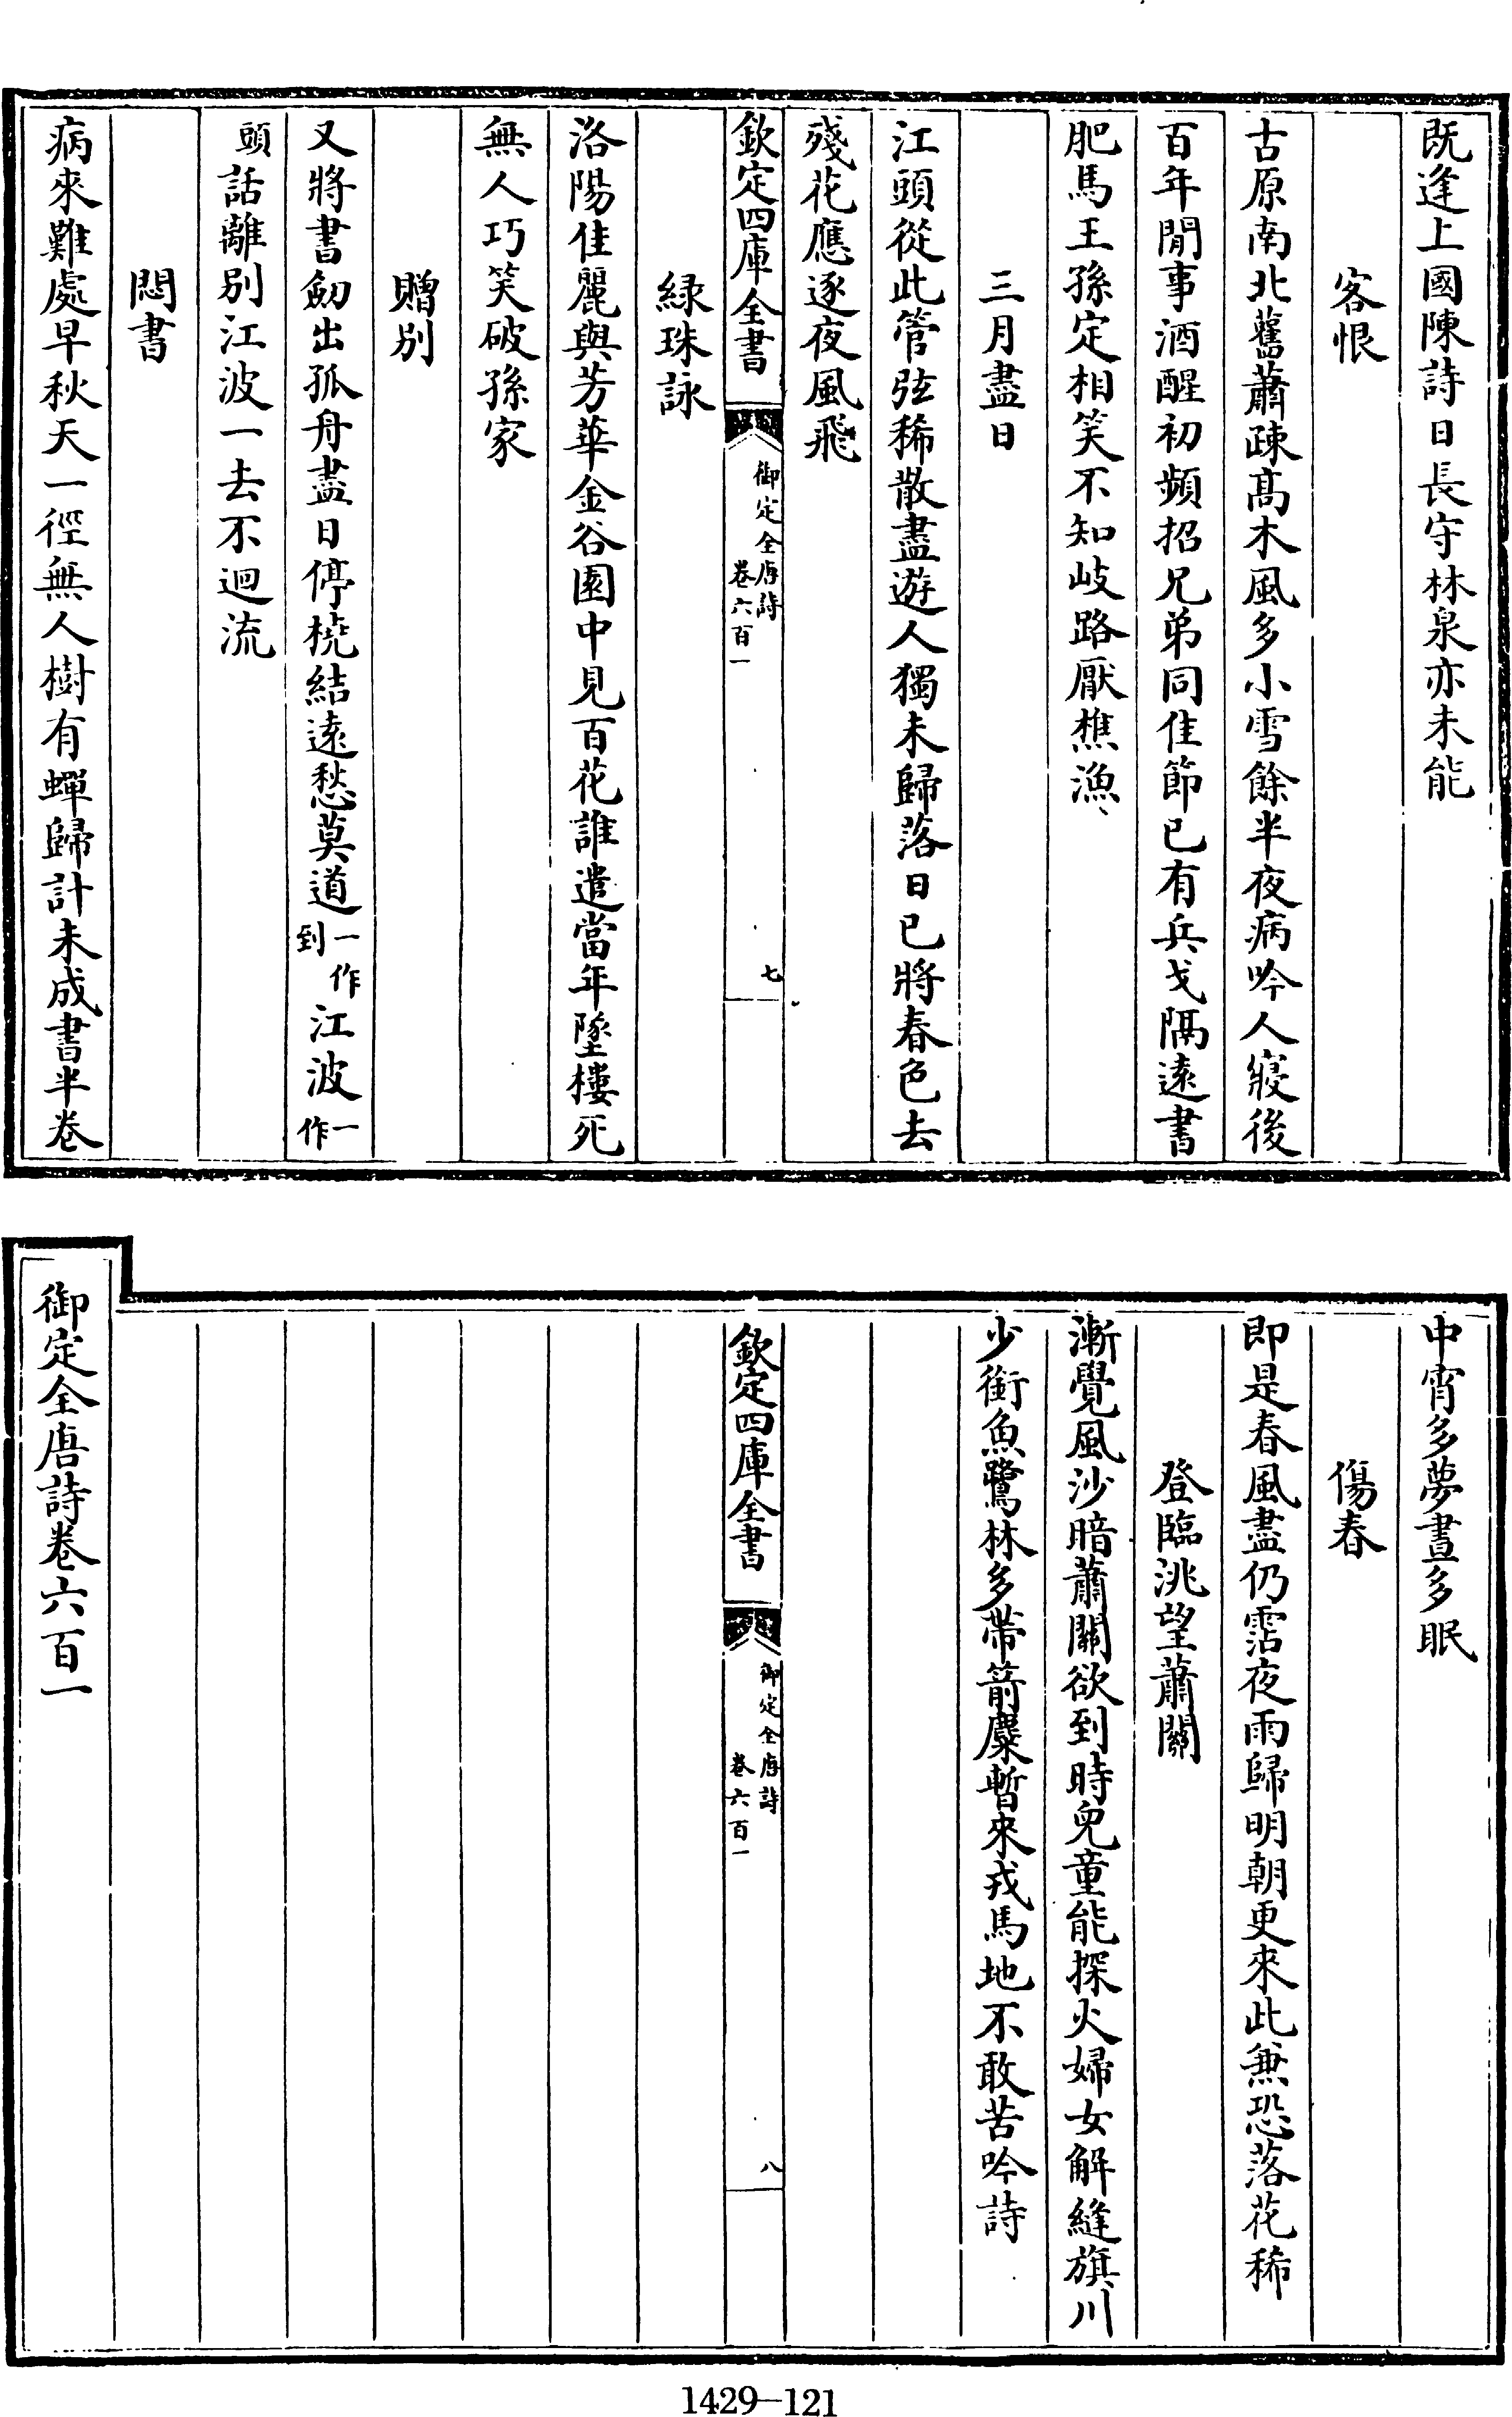 既逢上國陳詩日長守林泉亦未能
客恨
古原南北舊蕭疎髙木風多小雪餘半夜病吟人寢後
百年閒事酒醒初頻招兄弟同佳節已有兵戈隔逺書
肥馬王孫定相笑不知岐路厭樵漁
三月盡日
江頭從此管弦稀散盡遊人獨未歸落日已將春色去
殘花應逐夜風飛
欽定四庫全書
御定全唐詩
卷六百一
七
緑珠詠
洛陽佳麗與芳華金谷園中見百花誰遣當年墜樓死
無人巧笑破孫家
贈别
又將書劒出孤舟盡日停橈結逺愁莫道一作到江波一作
頭話離别江波一去不迴流
悶書
病來難處早秋天一徑無人樹有蟬歸計未成書半卷
中宵多夢晝多眠
傷春
即是春風盡仍霑夜雨歸明朝更來此兼恐落花稀
登臨洮望蕭關
漸覺風沙暗蕭關欲到時兒童能探火婦女解縫旗川
少銜魚鷺林多帶箭麋暫來戎馬地不敢苦吟詩
欽定四庫全書
御定全唐詩
卷六百一
八
御定全唐詩卷六百一
1429—121